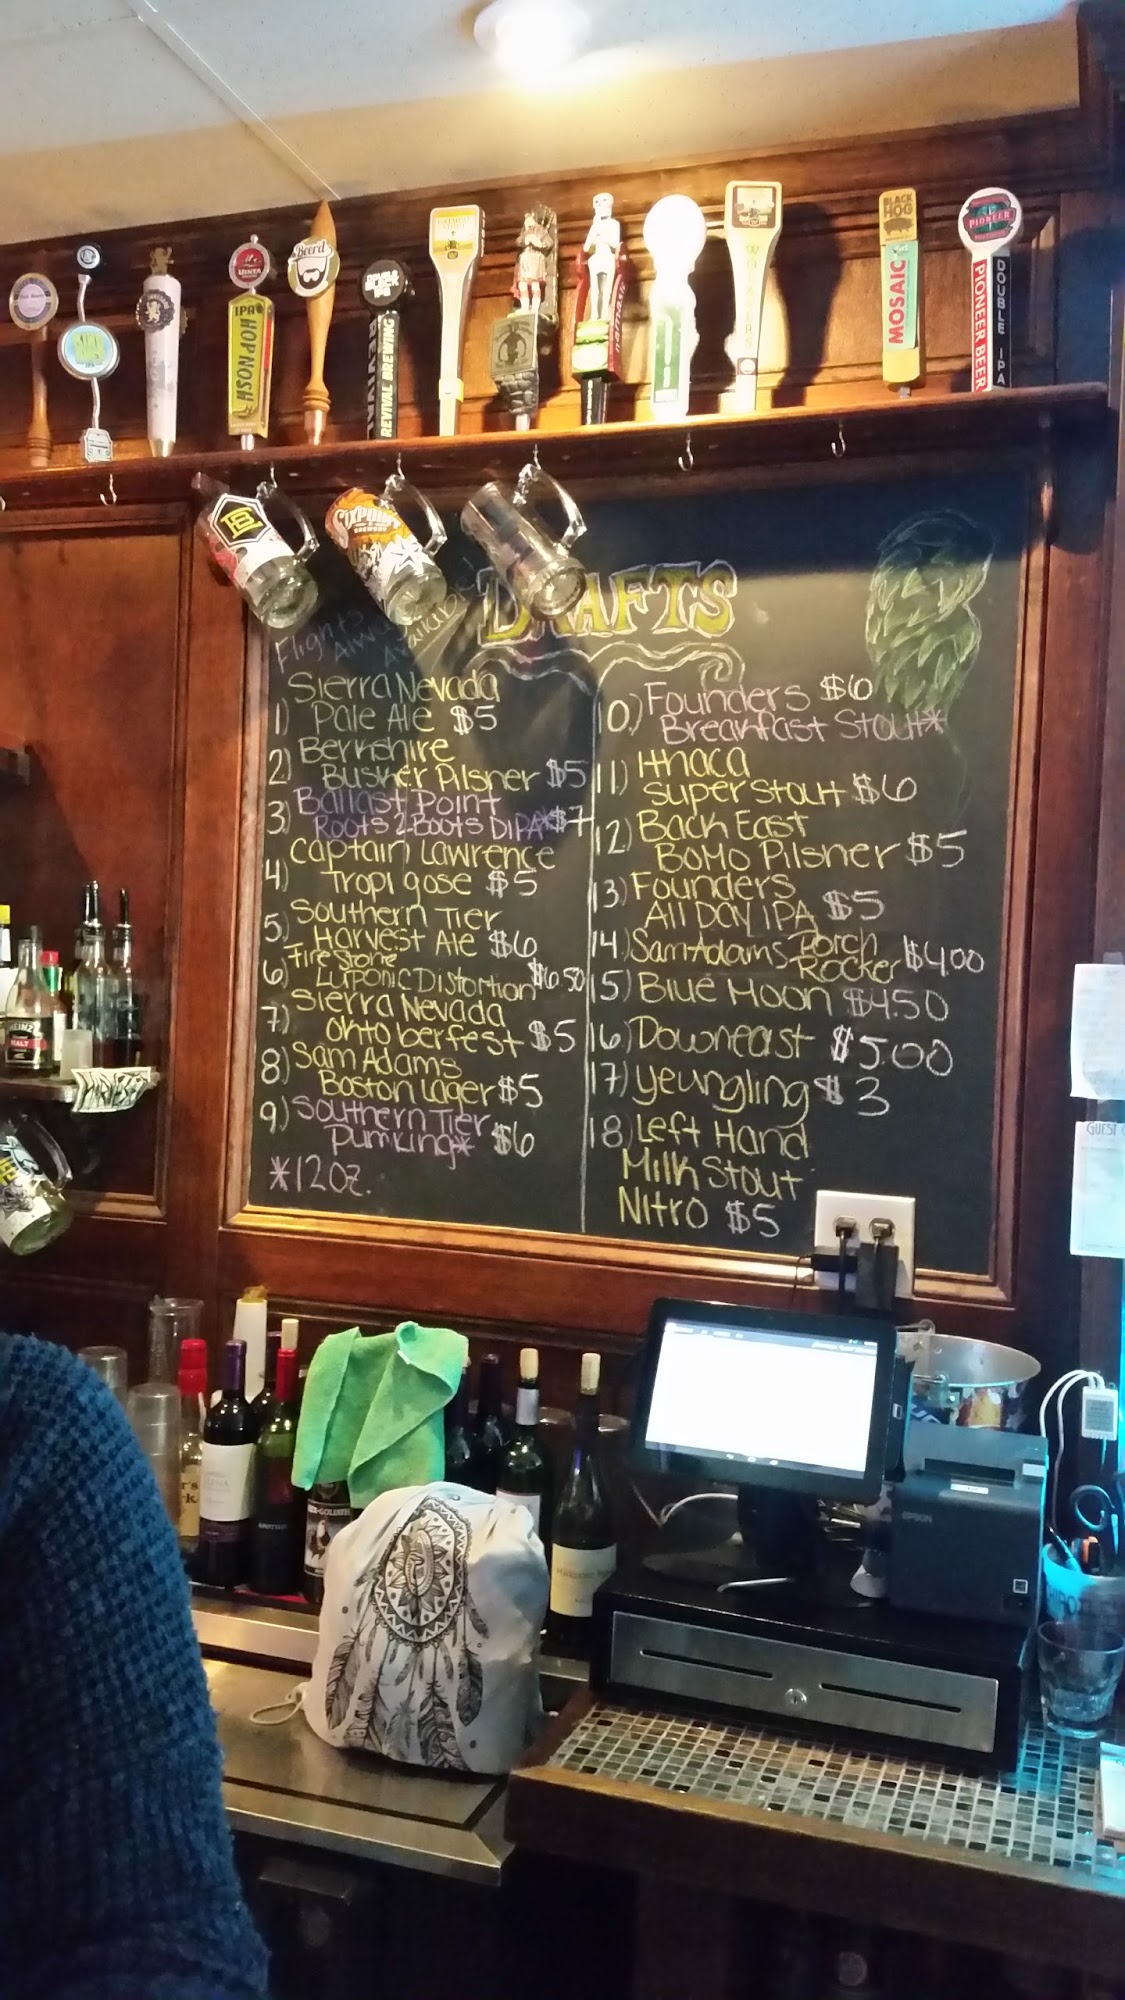 UINTA
IPA
HOP NOSH
Beer'd
DOUBLE
BLACK
IPA
REVIVAL
REVIVAL BREWING
namaste
BLACK
HOG
MOSAIC
PIONEER
PIONEER BEER
DOUBLE IPA
SIXPOINT
BREWERY
DRAFTS
Flights
Always
Available
Sierra Nevada
1) Pale Ale $5
Berkshire
2) Busker Pilsner $5
Ballast Point
3) Roots 2 Boots DIPA* $7
Captain Lawrence
4) Tropi gose $5
5) Southern Tier
Harvest Ale $6
Firestone
6) Luponic Distortion $6.50
7) Sierra Nevada
Ohtoberfest $5
8) Sam Adams
Boston Lager $5
9) Southern Tier
Pumking* $6
*12oz.
10) Founders $6
Breakfast Stout*
11) Ithaca
Super Stout $6
12) Back East
BoMo Pilsner $5
13) Founders
All Day IPA $5
14) Sam Adams Porch
Rocker $4.00
15) Blue Moon $4.50
16) Downeast $5.00
17) Yeungling $3
18) Left Hand
Milk Stout
Nitro $5
HEINZ
MALT
GUEST
EPSON